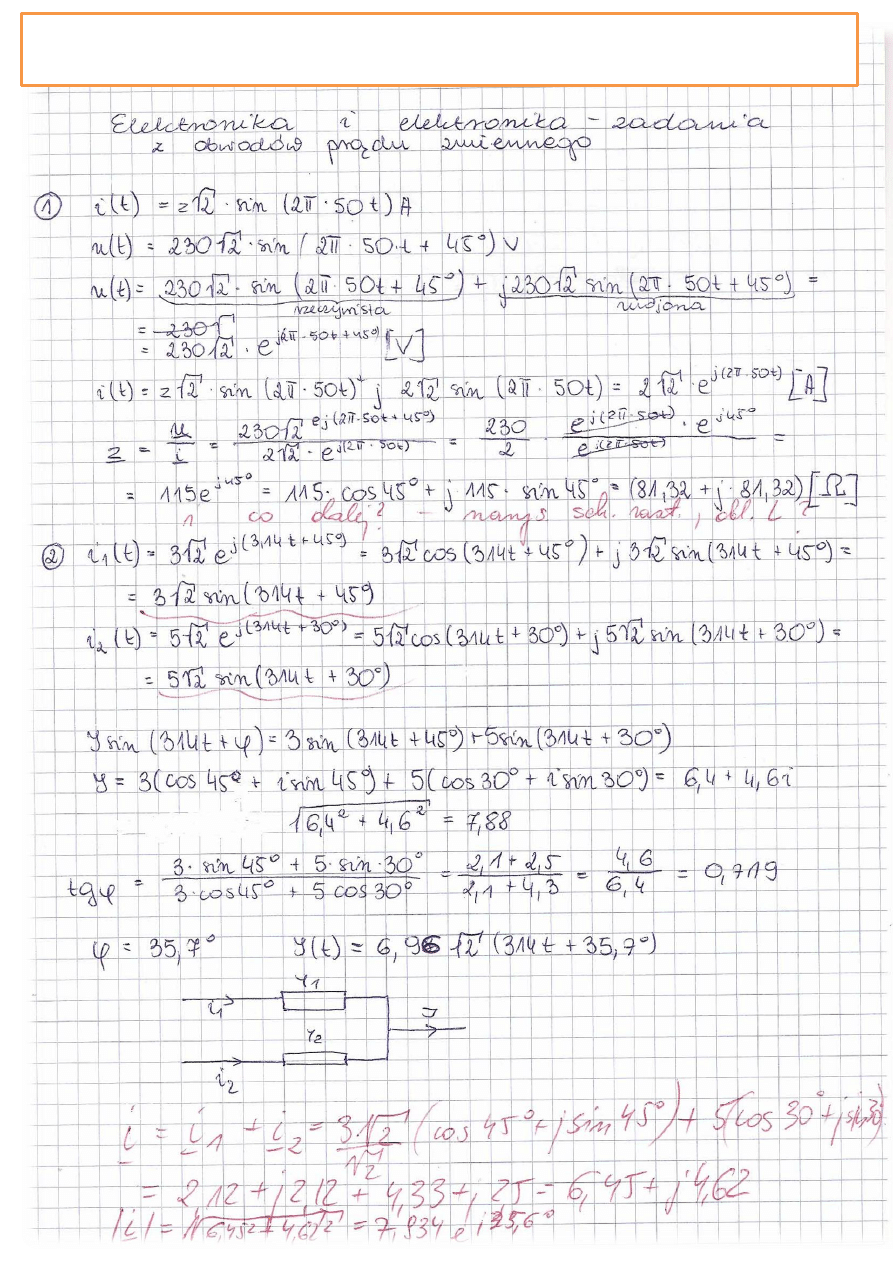 Elektronika i elektronika - zadania
z obwodów prądu zmiennego
① i(t) = 2√2 · sin (2π · 50t) A
u(t) = 230√2 · sin (2π · 50·t + 45°) V
u(t) = 230√2 · sin (2π · 50t + 45°) + j230√2 sin (2π · 50t + 45°) =
rzeczywista urojona
= 230√
= 230√2 · e^j(2π·50t+45°) [V]
i(t) = 2√2 · sin (2π · 50t) + j 2√2 sin (2π · 50t) = 2√2 · e^j(2π·50t) [A]
z = u/i = 230√2 e^j(2π·50t+45°) / 2√2 · e^j(2π·50t) = 230/2 · e^j(2π·50t) · e^j45° / e^j(2π·50t) =
= 115e^j45° = 115 · cos45° + j · 115 · sin 45° = (81,32 + j · 81,32) [Ω]
co dalej? - narys. sch. zast., obl. L ?
② i₁(t) = 3√2 e^j(314t+45°) = 3√2 cos (314t + 45°) + j 3√2 sin (314t + 45°) =
= 3√2 sin (314t + 45°)
i₂(t) = 5√2 e^j(314t+30°) = 5√2 cos (314t + 30°) + j5√2 sin (314t + 30°) =
= 5√2 sin (314t + 30°)
Y sin (314t + φ) = 3 sin (314t + 45°) + 5 sin (314t + 30°)
Y = 3(cos 45° + i sin 45°) + 5 (cos 30° + i sin 30°) = 6,4 + 4,6i
√6,4² + 4,6² = 7,88
tgφ = 3 · sin 45° + 5 · sin · 30° / 3 · cos45° + 5 cos 30° = 2,1 + 2,5 / 2,1 + 4,3 = 4,6 / 6,4 = 0,719
φ = 35,7° Y(t) = 6,96 √2 (314t + 35,7°)
r1
i₁
r2
i₂
i = i₁ + i₂ = 3√2/√2 (cos 45° + j sin 45°) + 5(cos 30° + j sin 30)
= 2,12 + j2,12 + 4,33 + j 2,5 = 6,45 + j4,62
|i| = √6,45² + 4,62² = 7,934 e^j35,6°